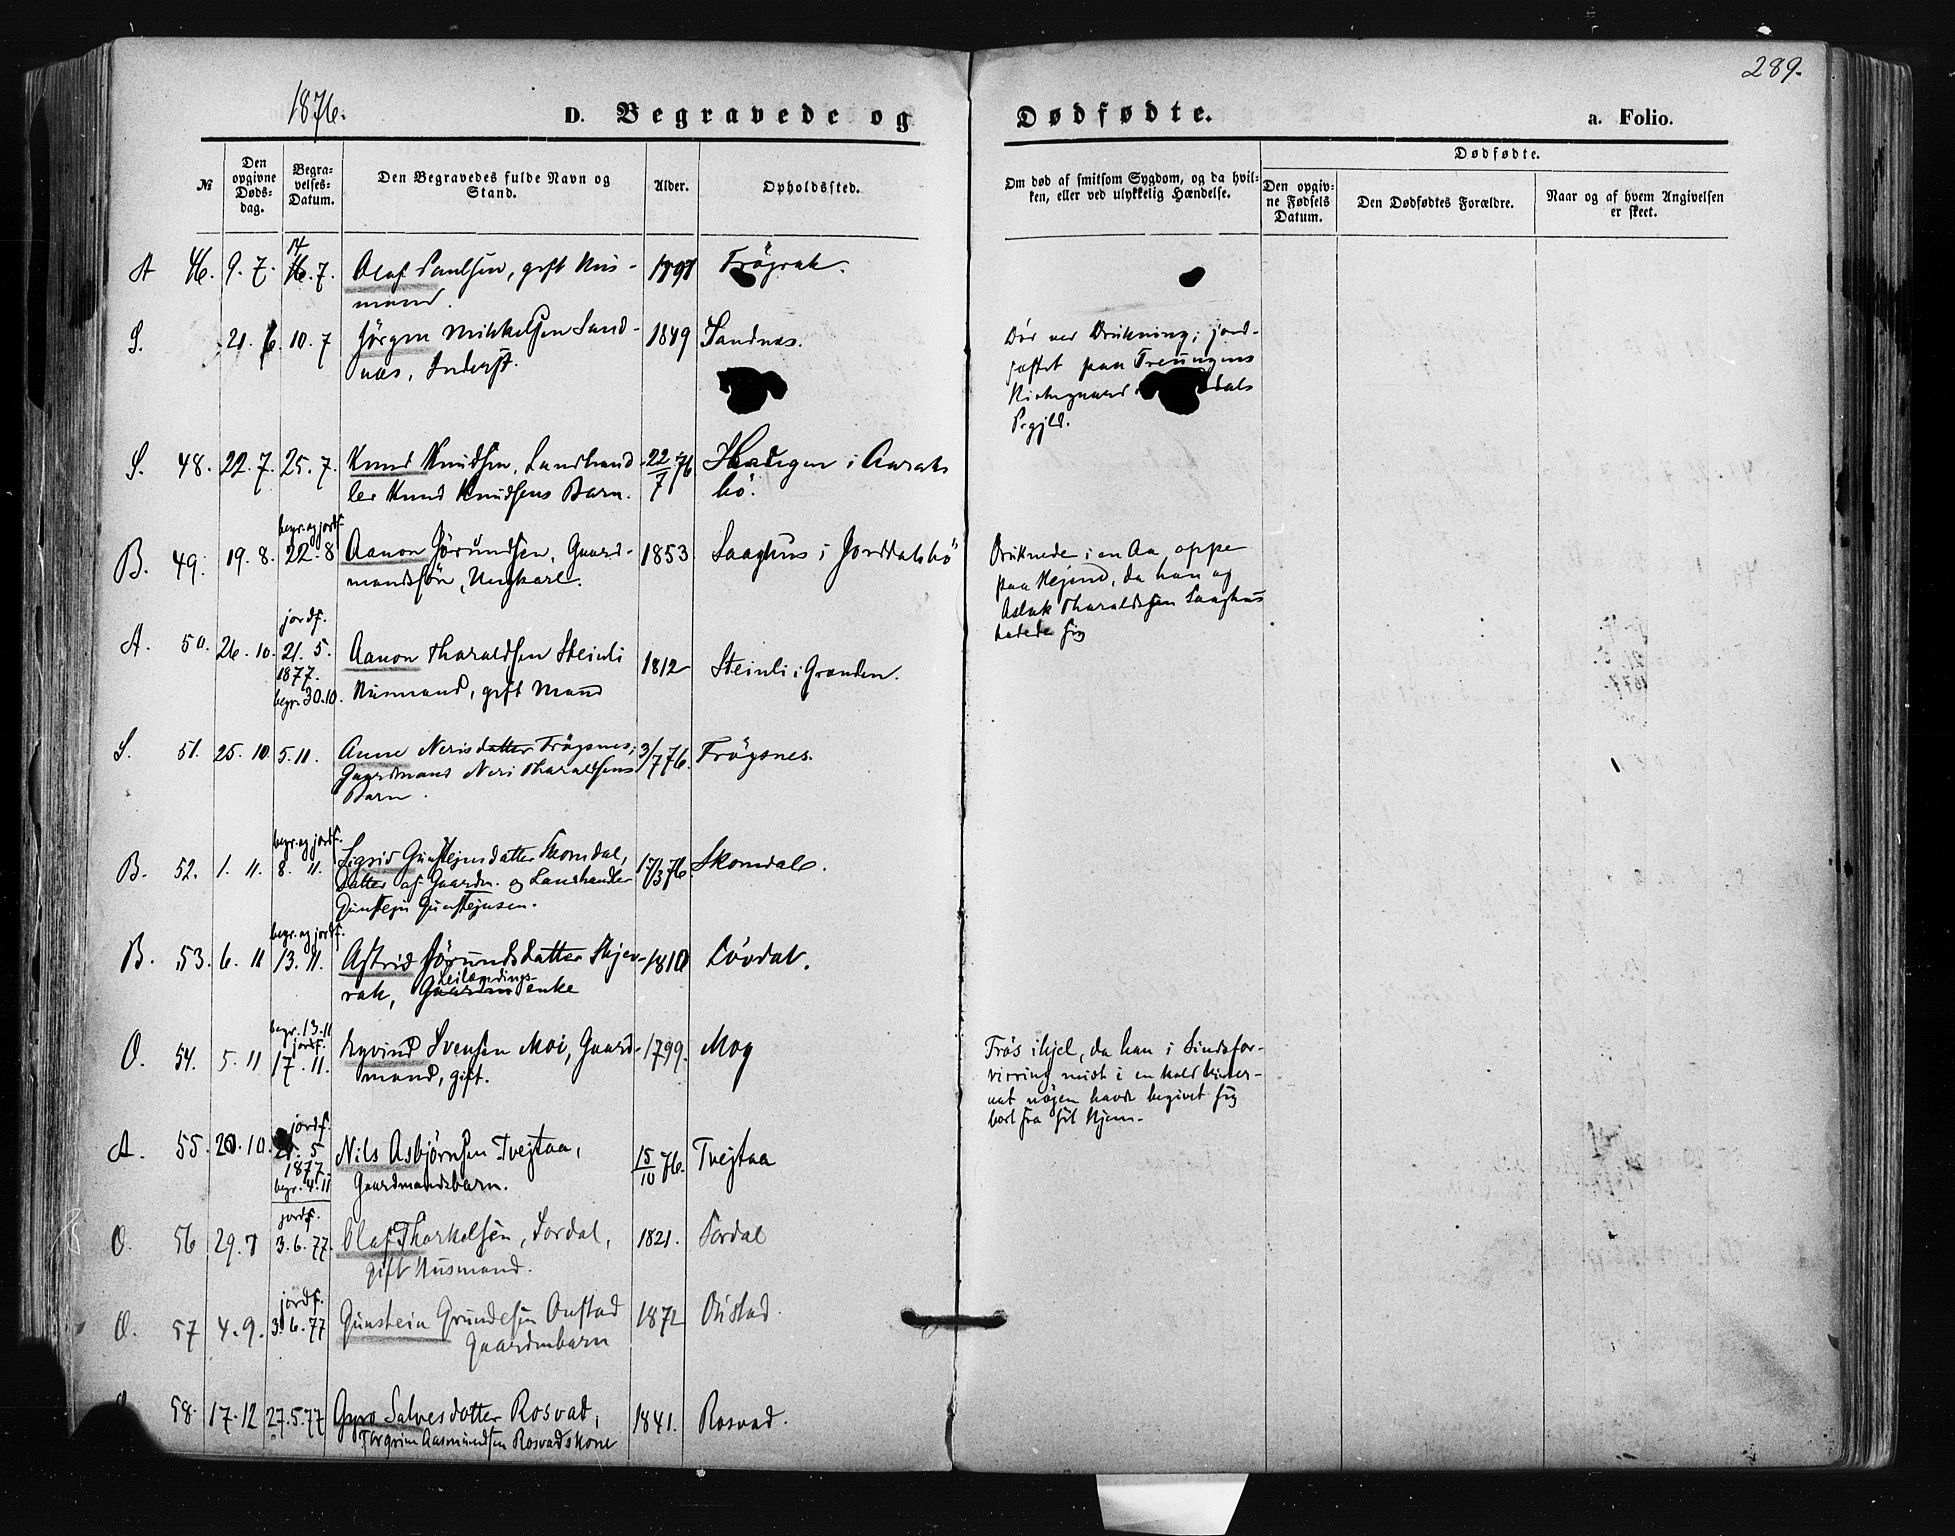 289.
1876.
D. Begravede og Dødfødte.
a. Folio.
№
Den opgivne Døds-dag.
Begra-velses-Datum.
Den Begravedes fulde Navn og Stand.
Alder.
Opholdssted.
Om død af smitsom Sygdom, og da hvil-ken, eller ved ulykkelig Hændelse.
Dødfødte.
Den opgiv-ne Fødsels Datum.
Den Dødfødtes Forældre.
Naar og af hvem Angivelsen er skeet.
14
A 46. 9. 7. 16. 7. Olaf Paulsen, gift Hus-
mand.
Frögrak.
S. 21. 6. 10. 7 Jörgen Mikkelsen Sand- 1849 Sandnæs.
næs, Inderst.
Död ved Drukning; jord-
fæstet paa Treungens
Kirkegaard
Prgjld.
S. 48. 22. 7. 25. 7. Knud Knudsen, Landhand- 22/7 76
ler Knud Knudsens Barn. bö.
begr. og jordf.
B. 49. 19. 8. 22. 8 Aanon Jörundsen, Gaard- 1853 Saaghus i Gjorddalsbö
mandssön, Ungkarl.
Druknede i en Aa oppe
paa Hejene, da han og
Aslak Tharaldsen Saaghus
badede sig
jordf.
A. 50. 26. 10. 21. 5. Aanon Tharaldsen Steinli 1812 Steinli i Grænden.
1877.
begr. 30.10. Husmand, gift Mand
S. 51. 25. 10 5. 11. Anne Nerisdatter Frögsnes, 3/7 76. Frögsnes.
Gaardmand Neri Tharaldsens
Barn.
begr. og jordf.
B. 52. 1. 11. 8. 11. Sigrid Gunstejnsdatter Skomdal, 17/3 76. Skomdal.
Datter af Gaardm. og Landhandler
Gunstejn Gunstejnsen.
begr. og jordf.
B. 53. 6. 11 13. 11. Astrid Jörundsdatter Skjev- 1810 Lövdal.
Leilændings-
rak, Gaardm enke
begr. 13.11
jordf.
O. 54. 5. 11 17. 11. Eyvind Svensen Moi, Gaard- 1799. Moy
mand, gift.
Frös ihjel, da han i Sindsfor-
virring midt i en kold Vinter-
nat nögen havde begivet sig
bort fra sit Hjem.
jordf.
A. 55. 20. 10. 21. 5 Nils Asbjörnsen Tvejtaa, 15/10 76. Tvejtaa
1877.
begr. 4.11 Gaardmandsbarn.
jordf.
O. 56 29. 7 3. 6. 77. Olaf Thorkelsen, Sordal, 1821. Sordal
gift Husmand.
jordf.
O. 57 4. 9. 3. 6. 77 Gunstein Grundesen Austad 1872
Gaardmbarn
58. 17. 12 27. 5. 77 Gyro Salvesdatter Rosvad, 1841. Rosvad.
Torgrim Aasmundsen Rosvads kone